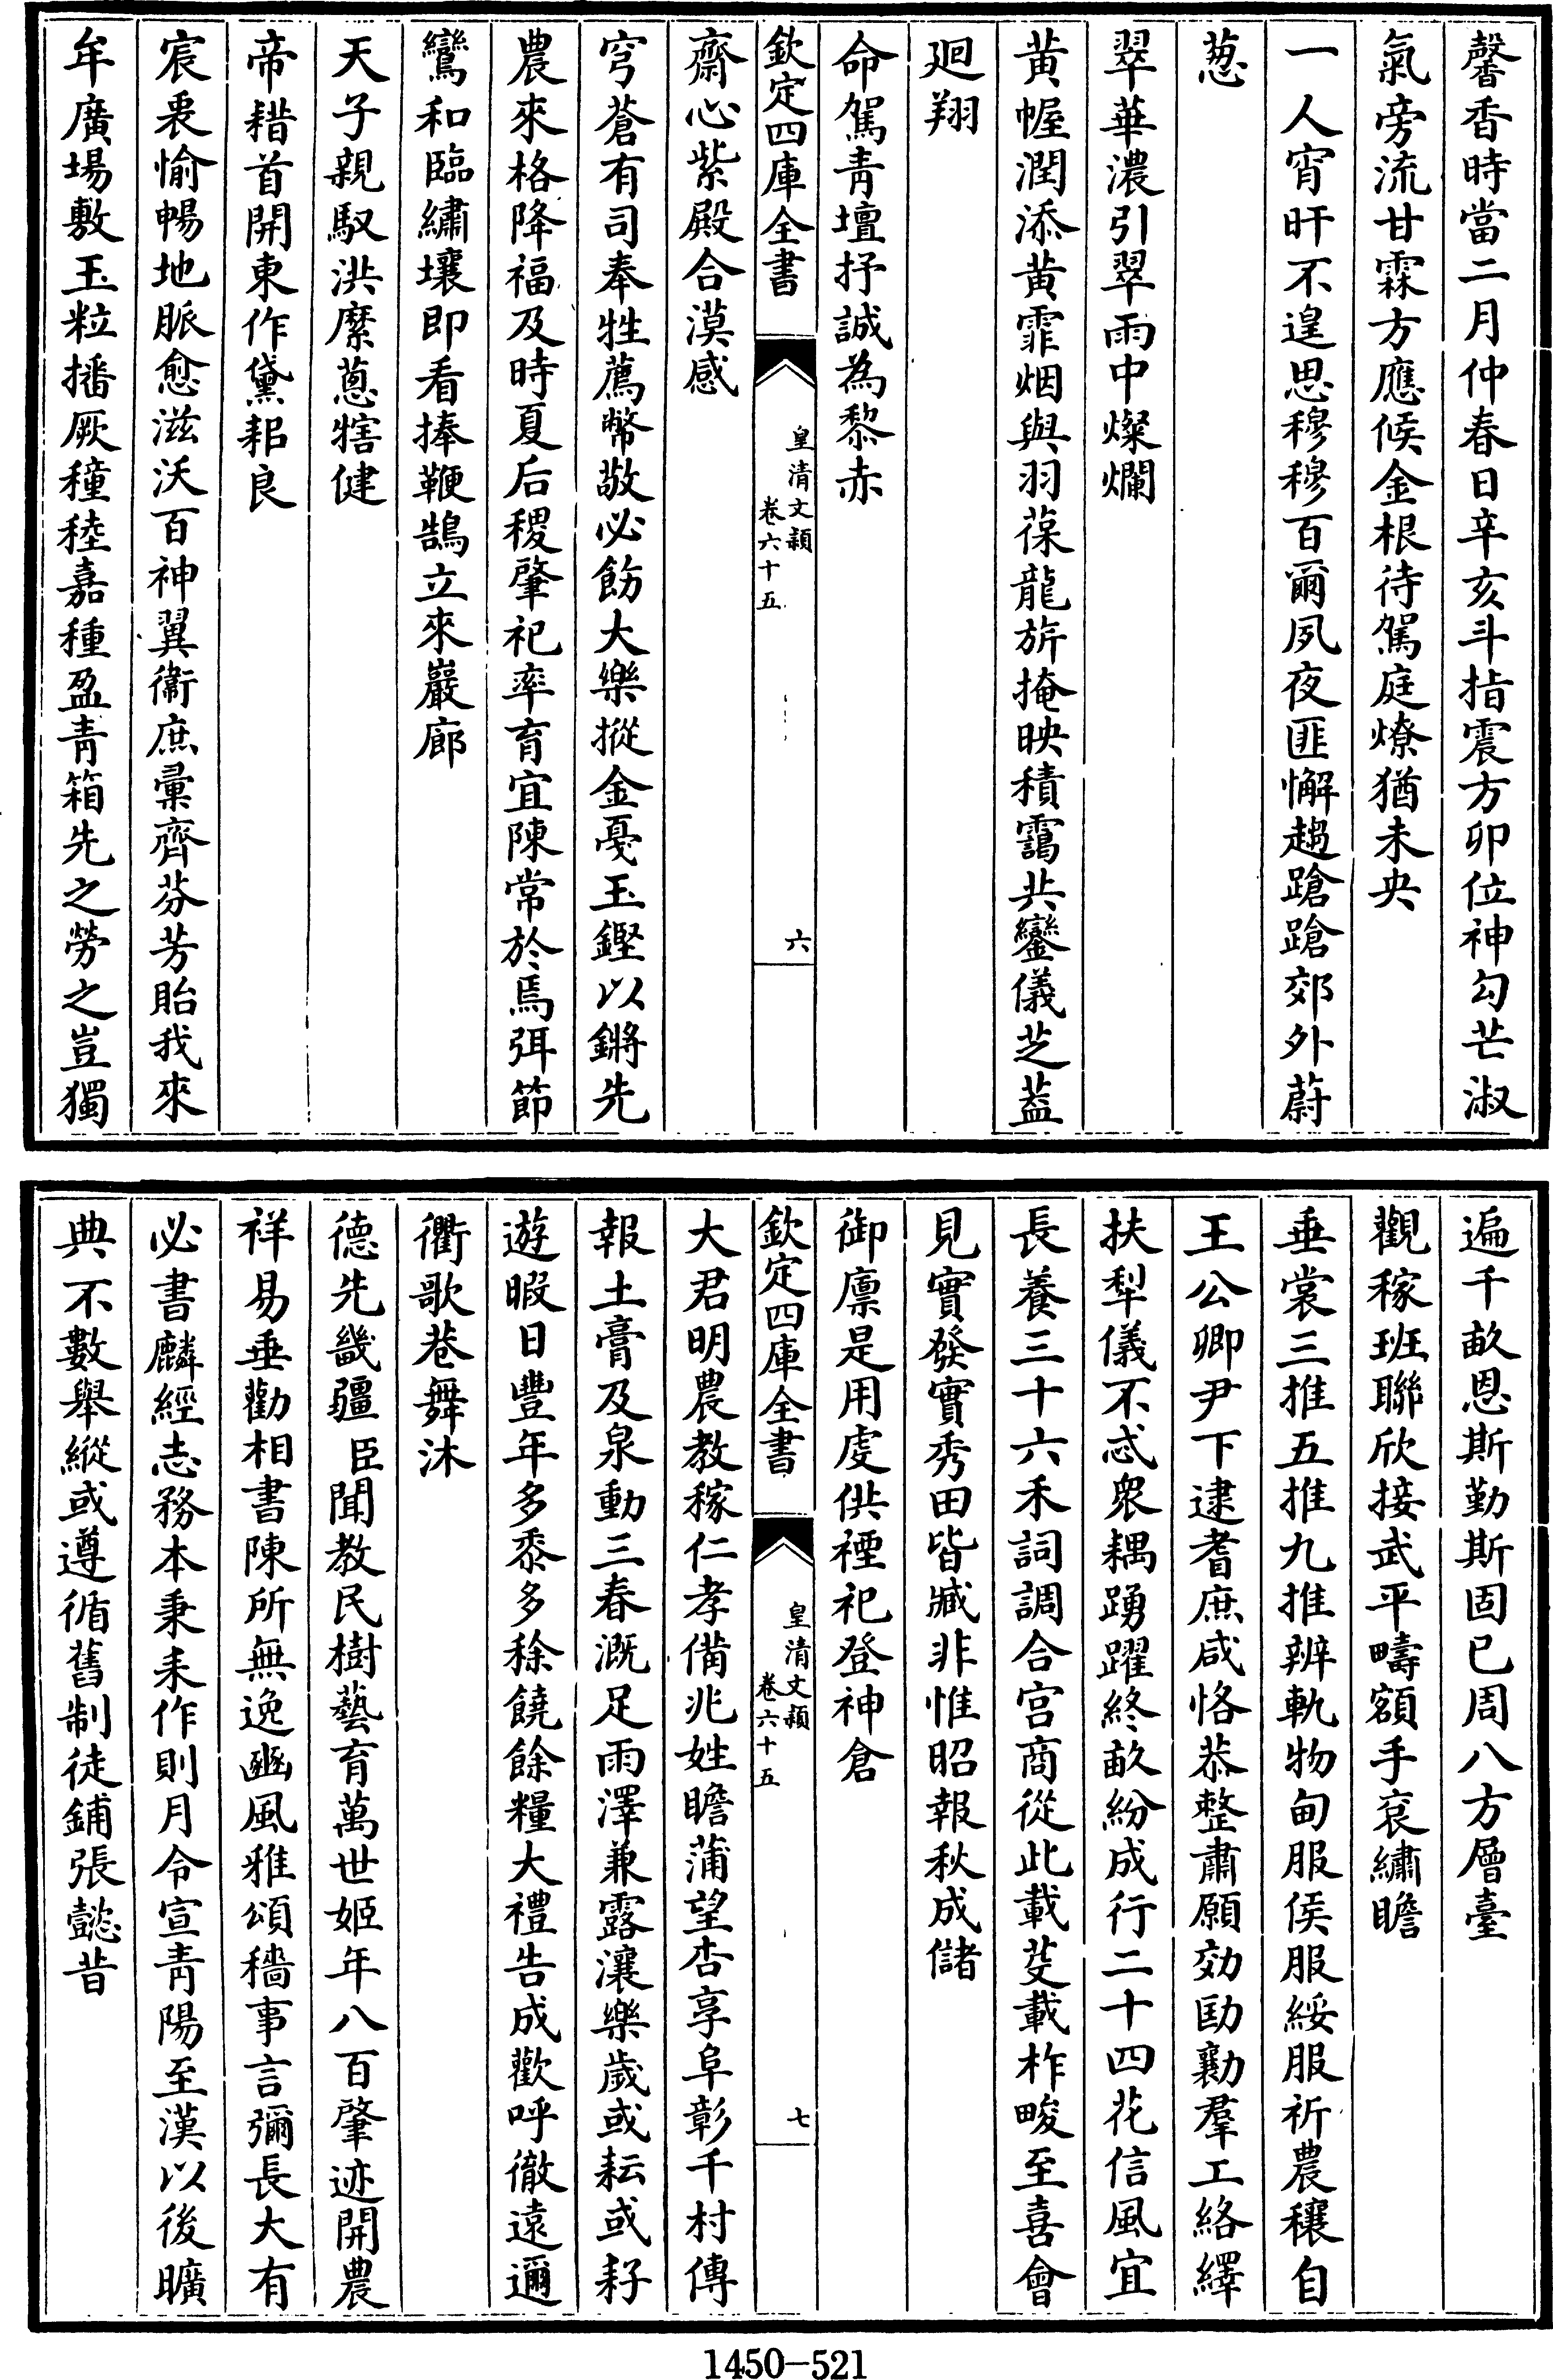 馨香時當二月仲春日辛亥斗指震方卯位神勾芒淑
氣旁流甘霖方應候金根待駕庭燎猶未央
一人宵旰不遑思穆穆百爾夙夜匪懈趨蹌蹌郊外蔚
葱
翠華濃引翠雨中燦爛
黃幄潤添黃霏烟與羽葆龍旂掩映積靄共鑾儀芝葢
廻翔
命駕青壇抒誠為黎赤
欽定四庫全書
皇清文穎
卷六十五
六
齋心紫殿合漠感
穹蒼有司奉牲薦幣敬必飭大樂摐金戞玉鏗以鏘先
農來格降福及時夏后稷肇祀率育宜陳常於焉弭節
鸞和臨繡壤即看捧鞭鵠立來巖廊
天子親馭洪縻蔥犗健
帝耤首開東作黛耜良
宸衷愉暢地脈愈滋沃百神翼衞庶彙齊芬芳貽我來
牟廣場敷玉粒播厥穜稑嘉種盈青箱先之勞之豈獨
遍千畝恩斯勤斯固已周八方層臺
觀稼班聯欣接武平疇額手袞繡瞻
垂裳三推五推九推辨軌物甸服侯服綏服祈農穰自
王公卿尹下逮耆庶咸恪恭整肅願効劻勷羣工絡繹
扶犁儀不忒衆耦踴躍終畝紛成行二十四花信風宜
長養三十六禾詞調合宫商從此載芟載柞畯至喜會
見實發實秀田皆臧非惟昭報秋成儲
御廩是用虔供禋祀登神倉
欽定四庫全書
皇清文穎
卷六十五
七
大君明農教稼仁孝備兆姓瞻蒲望杏享阜彰千村傳
報土膏及泉動三春溉足雨澤兼露瀼樂歲或耘或耔
遊暇日豐年多黍多稌饒餘糧大禮告成歡呼徹遠邇
衢歌巷舞沐
德先畿疆臣聞教民樹藝育萬世姬年八百肇迹開農
祥易垂勸相書陳所無逸豳風雅頌穡事言彌長大有
必書麟經志務本秉耒作則月令宣青陽至漢以後曠
典不數舉縱或遵循舊制徒鋪張懿昔
1450-521